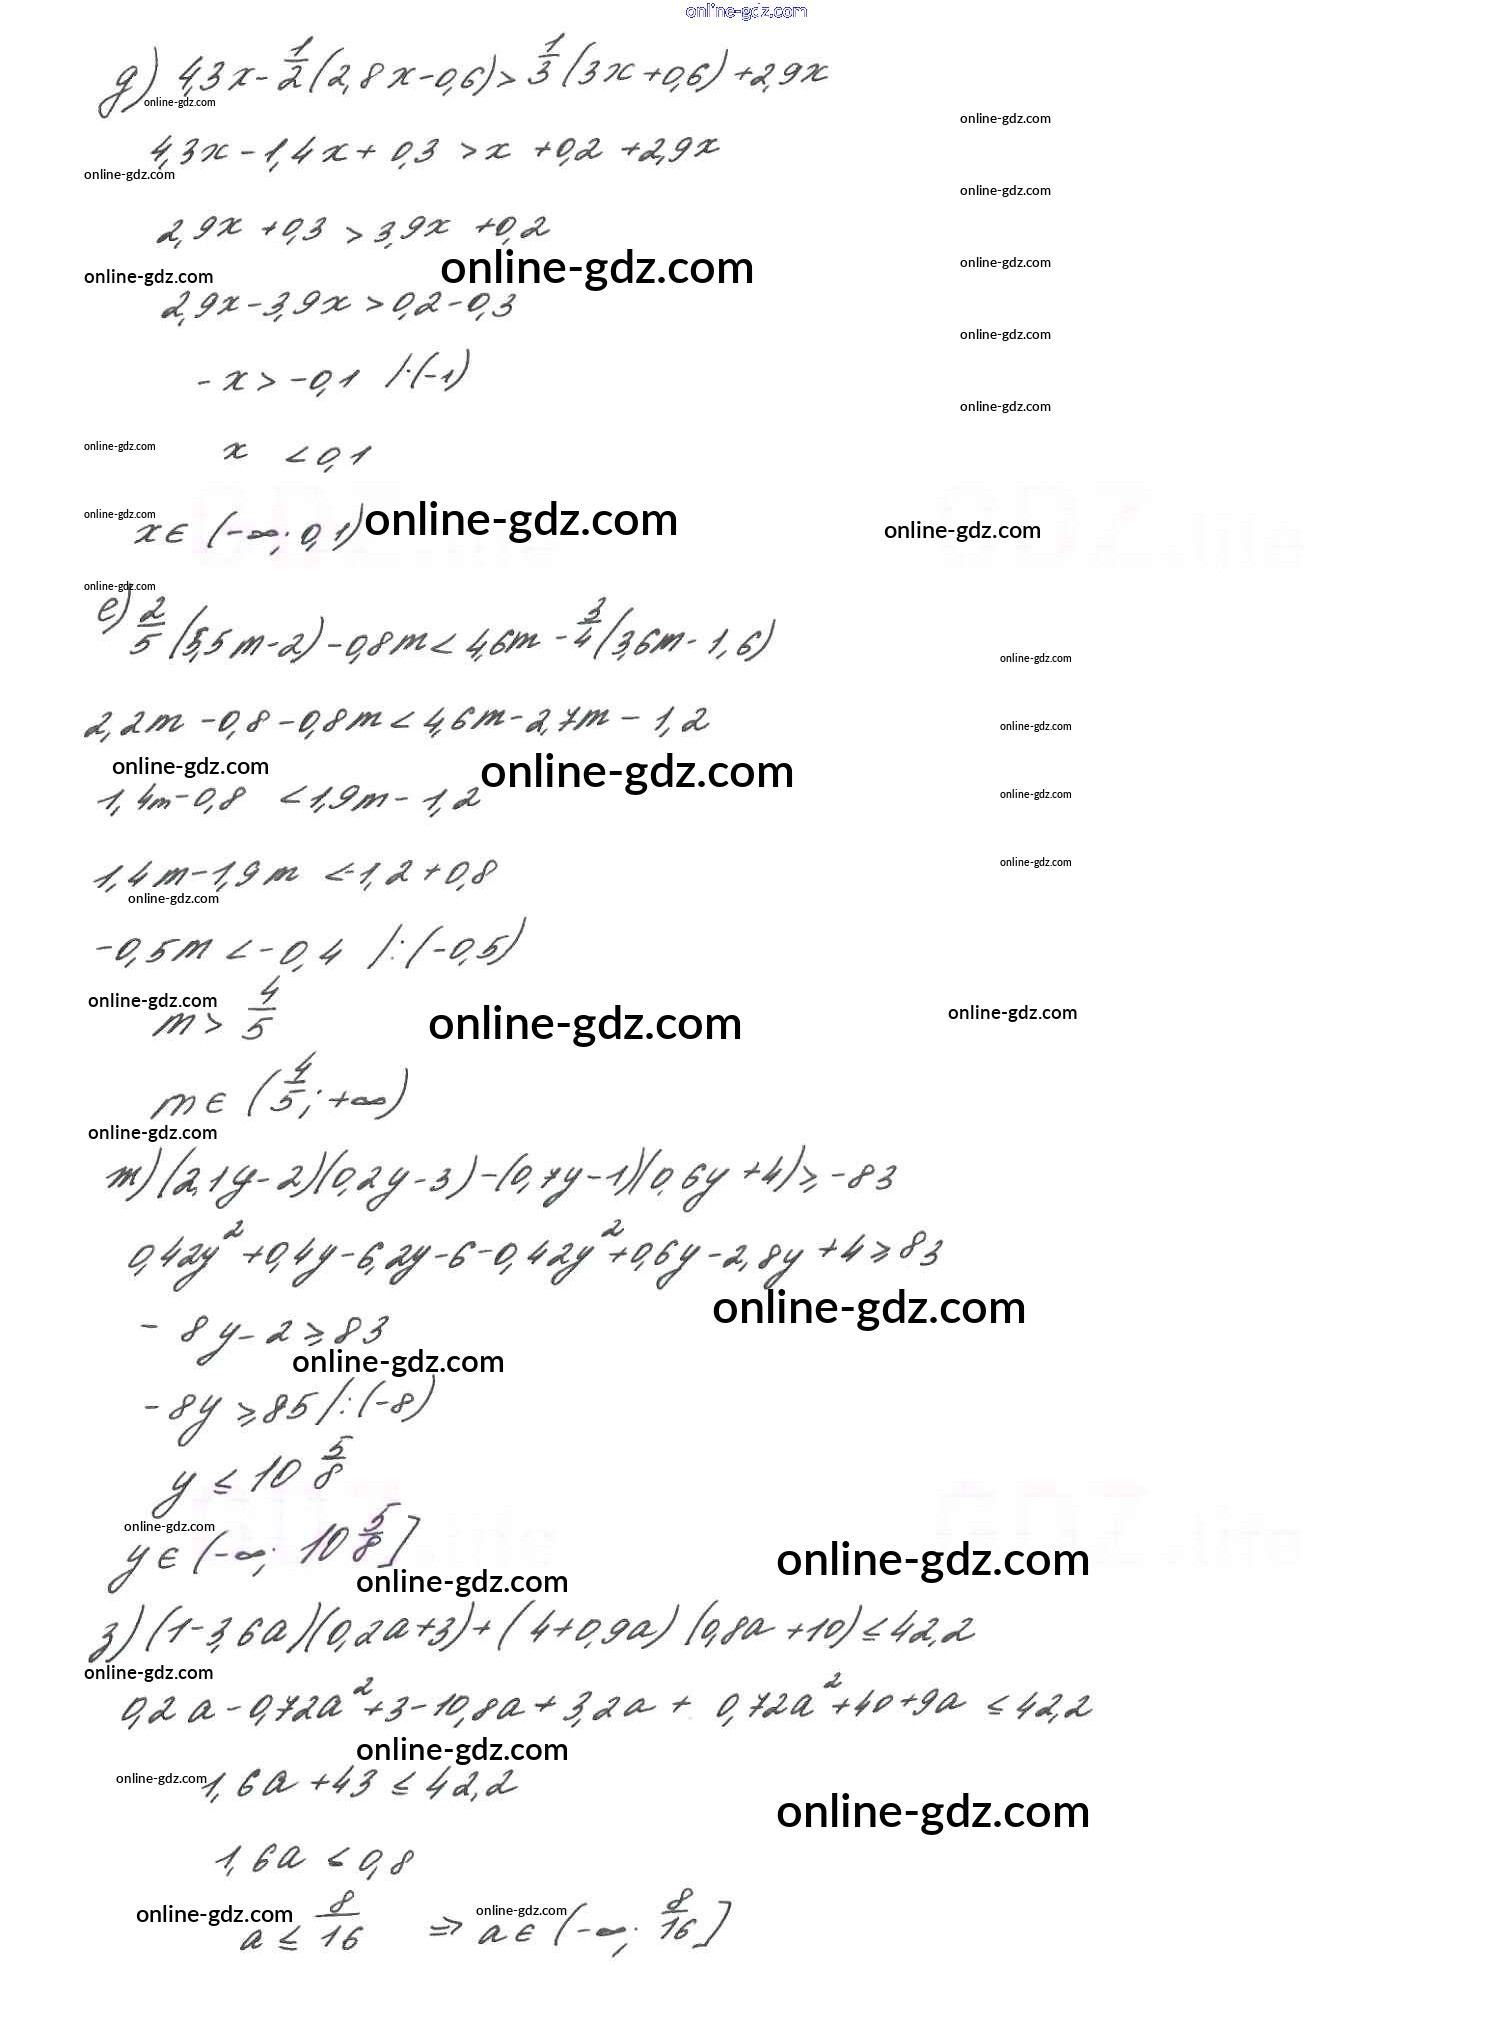 online-gdz.com
д) 4,3x - 1/2 (2,8x - 0,6) > 1/3 (3x + 0,6) + 2,9x
online-gdz.com
online-gdz.com
4,3x - 1,4x + 0,3 > x + 0,2 + 2,9x
online-gdz.com
online-gdz.com
2,9x + 0,3 > 3,9x + 0,2
online-gdz.com online-gdz.com online-gdz.com
2,9x - 3,9x > 0,2 - 0,3
online-gdz.com
-x > -0,1 /·(-1)
online-gdz.com
online-gdz.com
x < 0,1
online-gdz.com
x ∈ (-∞; 0,1) online-gdz.com online-gdz.com
online-gdz.com
е) 2/5 (5,5m - 2) - 0,8m < 4,6m - 3/4 (3,6m - 1,6)
online-gdz.com
2,2m - 0,8 - 0,8m < 4,6m - 2,7m - 1,2
online-gdz.com
online-gdz.com online-gdz.com
1,4m - 0,8 < 1,9m - 1,2
online-gdz.com
1,4m - 1,9m < -1,2 + 0,8
online-gdz.com
online-gdz.com
-0,5m < -0,4 /:(-0,5)
online-gdz.com online-gdz.com online-gdz.com
m > 4/5
m ∈ (4/5; +∞)
online-gdz.com
m) (2,1y - 2)(0,2y - 3) - (0,7y - 1)(0,6y + 4) ≥ -83
0,42y² + 0,4y - 6,2y - 6 - 0,42y² + 0,6y - 2,8y + 4 ≥ 83
online-gdz.com
- 8y - 2 ≥ 83
online-gdz.com
-8y ≥ 85 /:(-8)
y ≤ 10 5/8
online-gdz.com
y ∈ (-∞; 10 5/8]
online-gdz.com online-gdz.com
з) (1 - 3,6a)(0,2a + 3) + (4 + 0,9a) (0,8a + 10) ≤ 42,2
online-gdz.com
0,2a - 0,72a² + 3 - 10,8a + 3,2a + 0,72a² + 40 + 9a ≤ 42,2
online-gdz.com
online-gdz.com 1,6a + 43 ≤ 42,2
online-gdz.com
1,6a ≤ 0,8
online-gdz.com online-gdz.com
a ≤ 8/16 ⇒ a ∈ (-∞; 8/16]